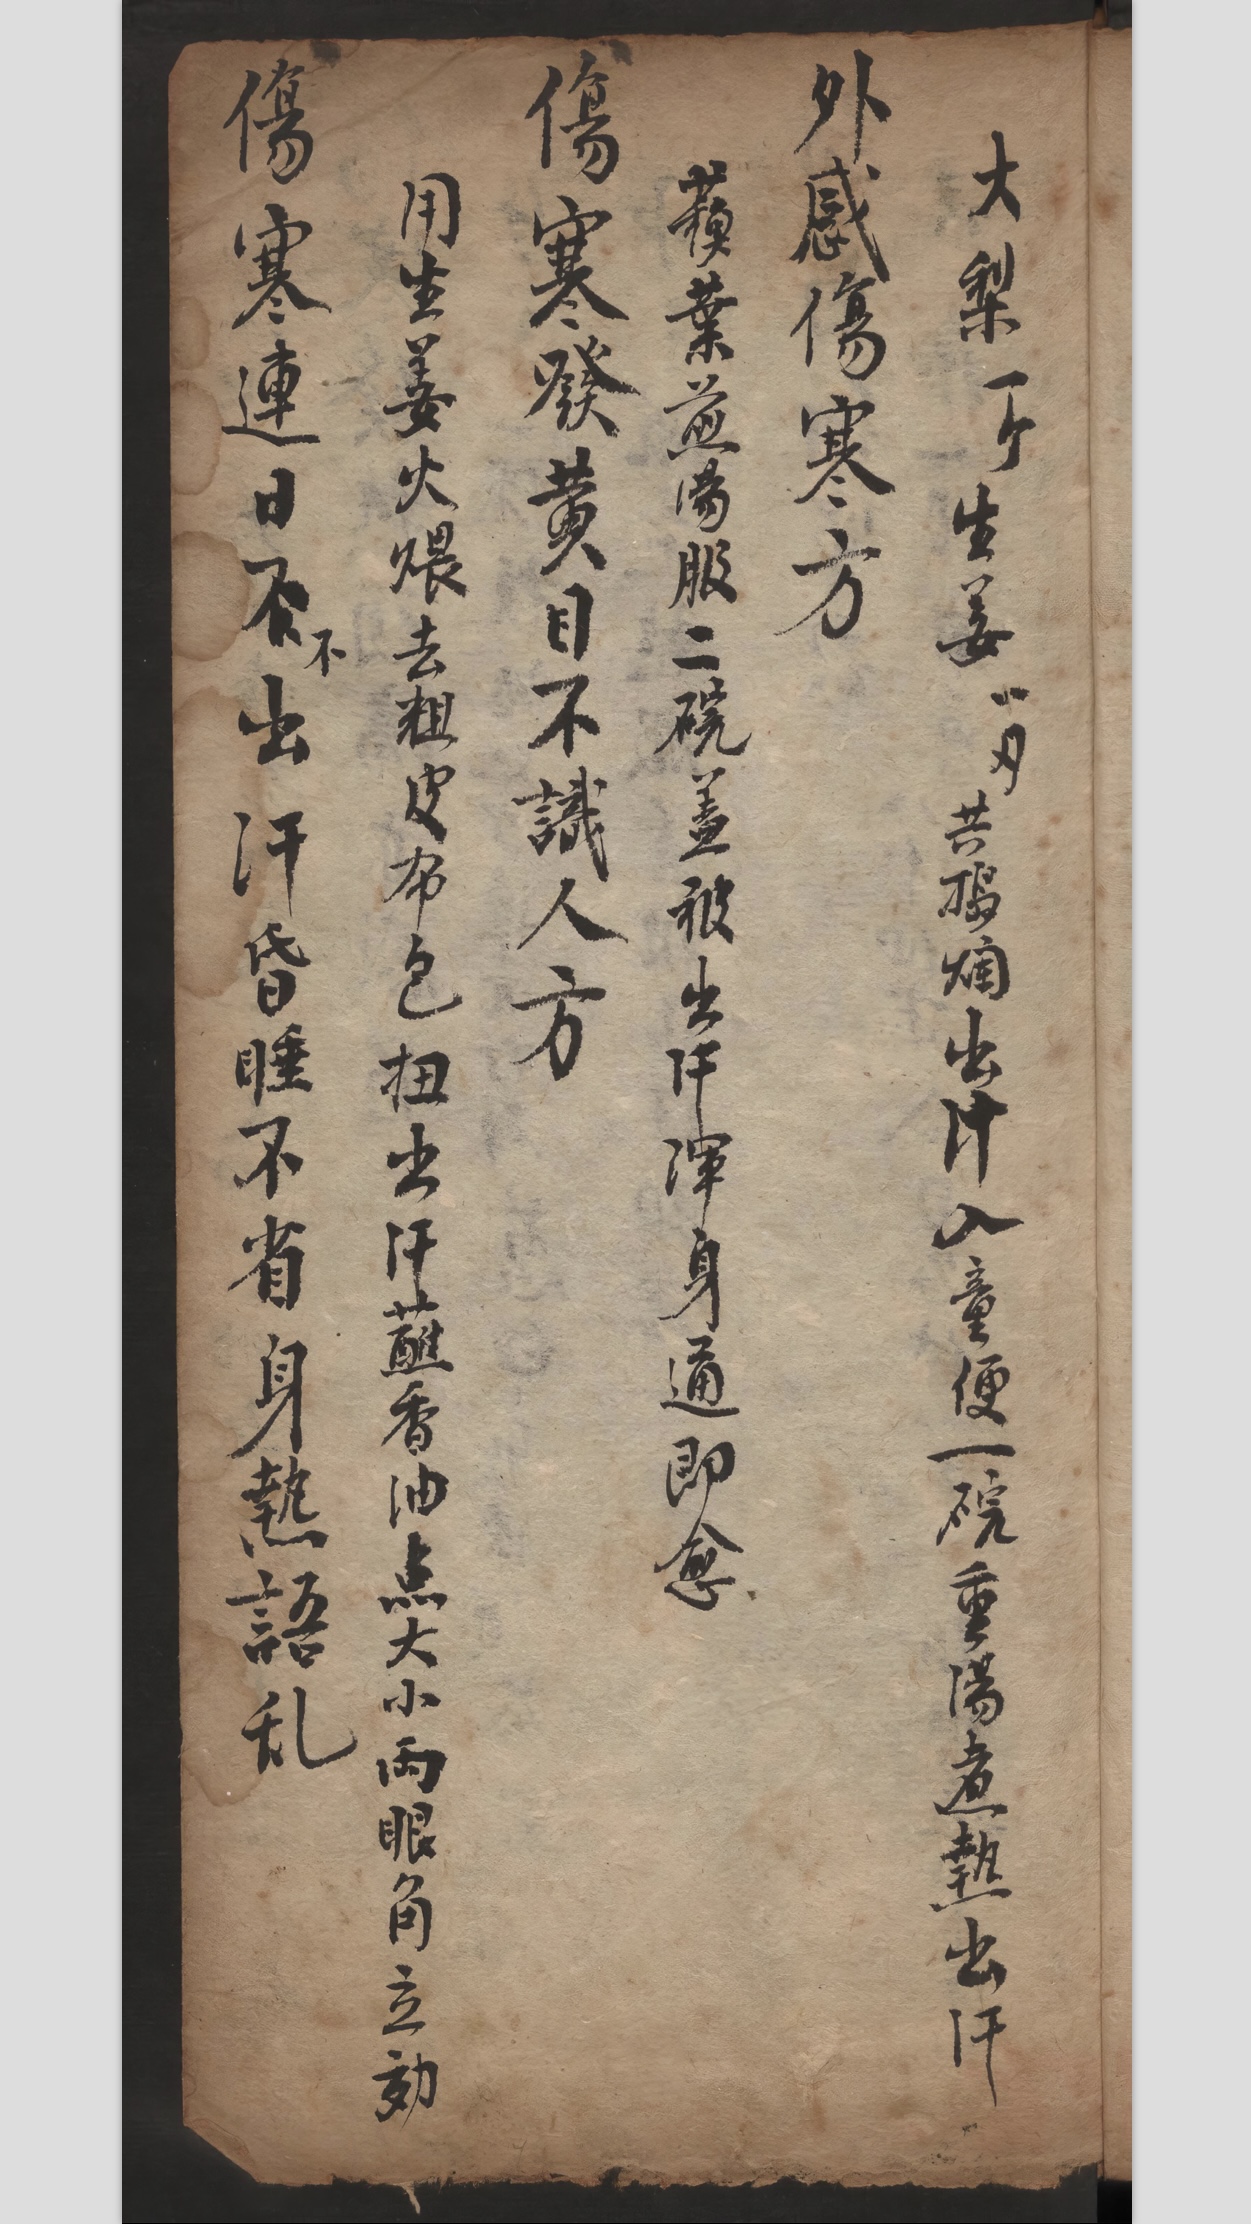 大梨一个生姜二片共搗爛出汁入童便一碗重湯煮熱出汗
外感傷寒方
蘓葉煎湯服二碗盖被出汗渾身通即愈
傷寒發黄目不識人方
用生姜火煨去粗皮布包扭出汗蘸香油点大小两眼角立効
傷寒連日不出汗昏睡不省身熱語乱